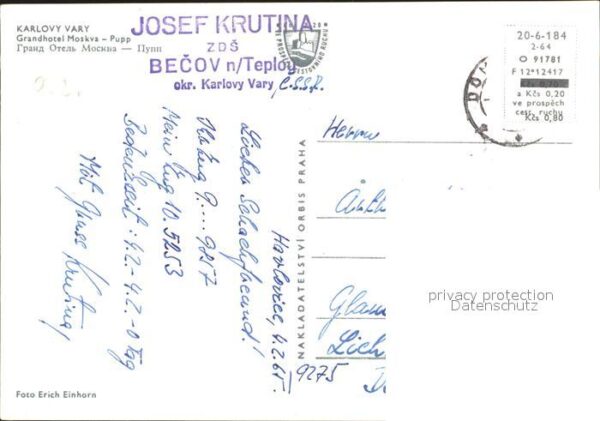 KARLOVY VARY
Grandhotel Moskva – Pupp
Гранд Отель Москва — Пупп
JOSEF KRUTINA
ZDŠ
BEČOV n/Teplou
okr. Karlovy Vary
Č.S.S.R.
20-6-184
2-64
O 91781
F 12*12417
Kčs 0,70
a Kčs 0,20
ve prospěch
cest. ruchu
Kčs 0,80
4.2.65.
Lieber Schachfreund!
Ihr Zug 9.... 9257
Mein Zug 10. 5253
Bedenkzeit: 4.2.-4.2.-0 Tag
Mit Gruss Krutina,
NAKLADATELSTVÍ ORBIS PRAHA
Herrn
Glau
Lich
9275
privacy protection
Datenschutz
Foto Erich Einhorn